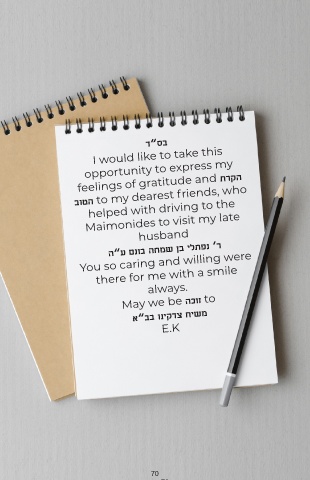 בס״ד
I would like to take this
opportunity to express my
feelings of gratitude and הקרת
המוב to my dearest friends, who
helped with driving to the
Maimonides to visit my late
husband
ר׳ נפתלי בן שמחה בונם ע״ה
You so caring and willing were
there for me with a smile
always.
May we be זוכה to
משיח צדקינו בב״א
E.K
70